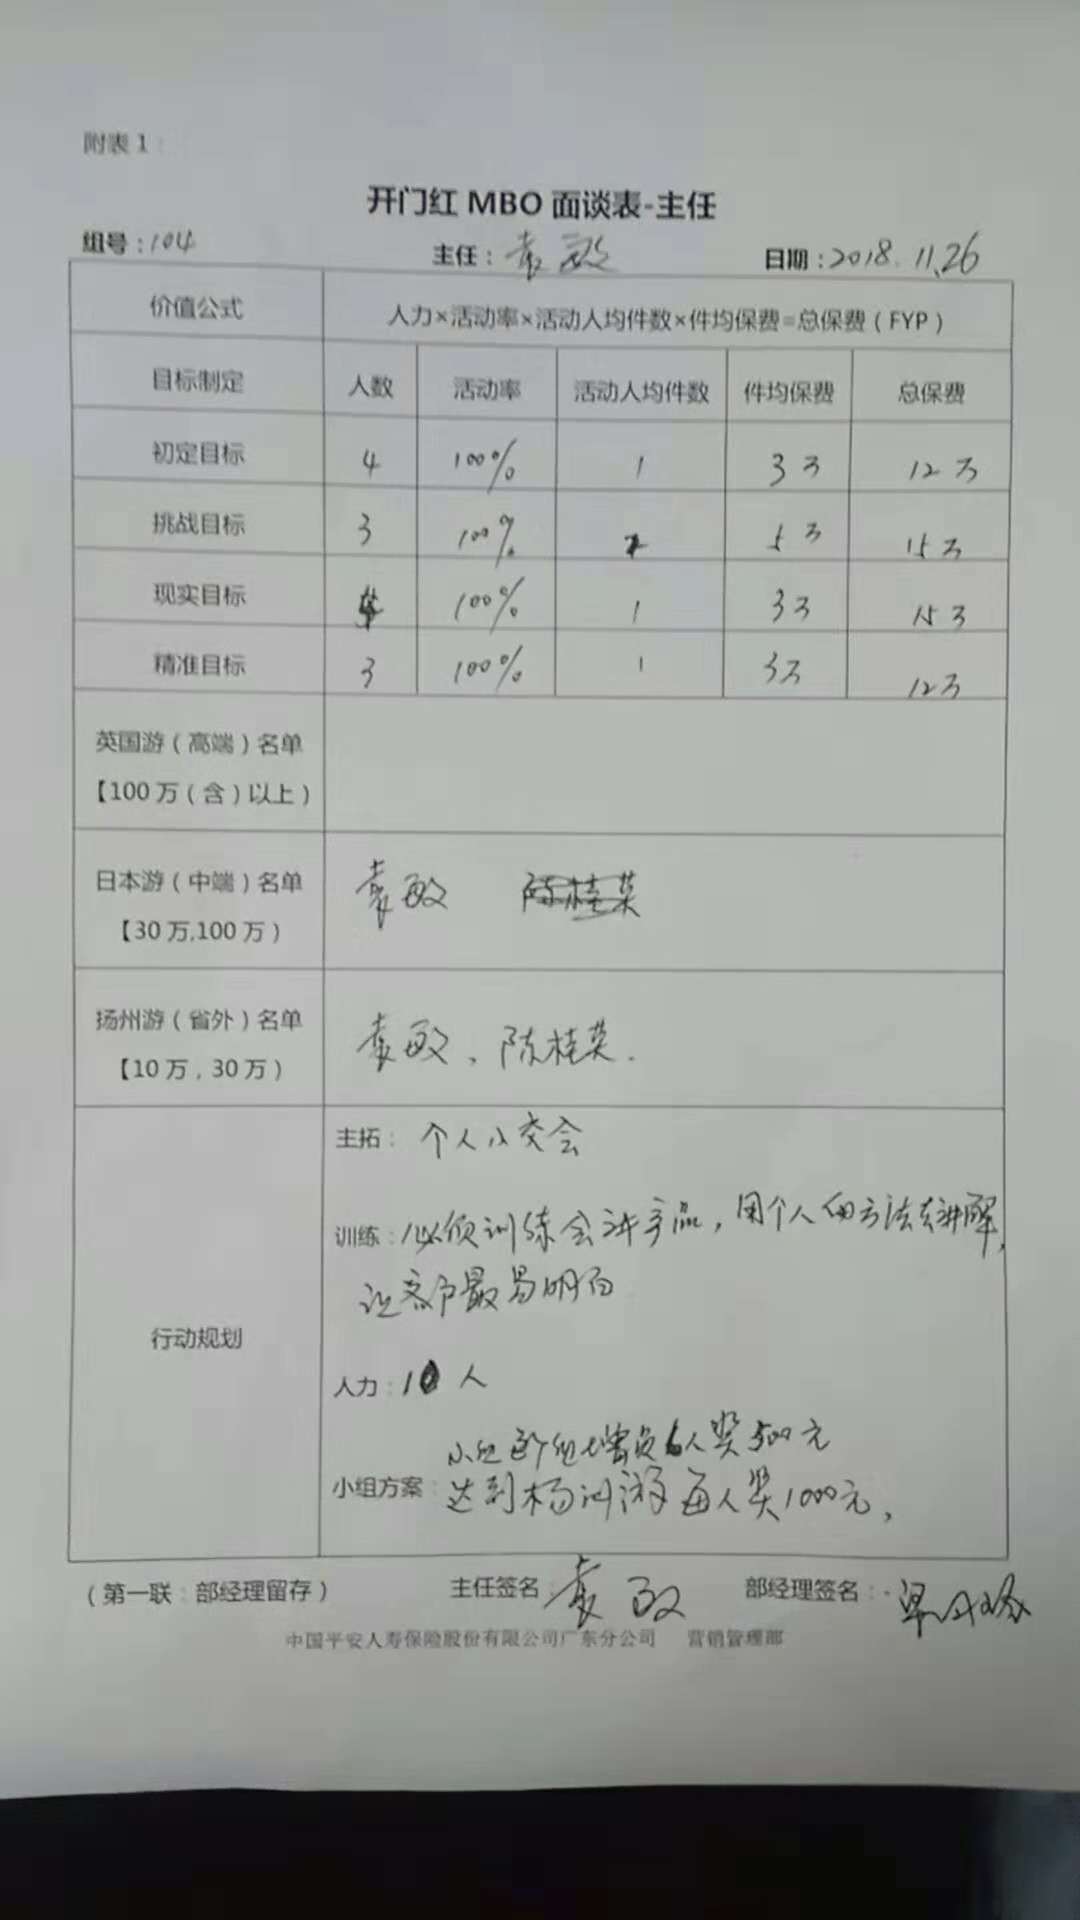 附表1：
开门红 MBO 面谈表-主任
组号：104 主任：袁敏 日期：2018.11.26
价值公式 人力×活动率×活动人均件数×件均保费=总保费（FYP）
目标制定 人数 活动率 活动人均件数 件均保费 总保费
初定目标 4 100% 1 3万 12万
挑战目标 3 100% 5万 15万
现实目标 100% 1 3万 15万
精准目标 3 100% 1 3万 12万
英国游（高端）名单
【100万（含）以上）
日本游（中端）名单 袁敏 陈桂英
【30万,100万）
扬州游（省外）名单 袁敏、陈桂英.
【10万，30万）
行动规划
主拓： 个人小交会
训练：必须训练会讲产品，用个人的方法去讲解，
让客户最易明白
人力：10 人
小组 增员 人奖500元
小组方案：达到杨州游每人奖1000元，
（第一联：部经理留存） 主任签名：袁敏 部经理签名：
中国平安人寿保险股份有限公司广东分公司 营销管理部